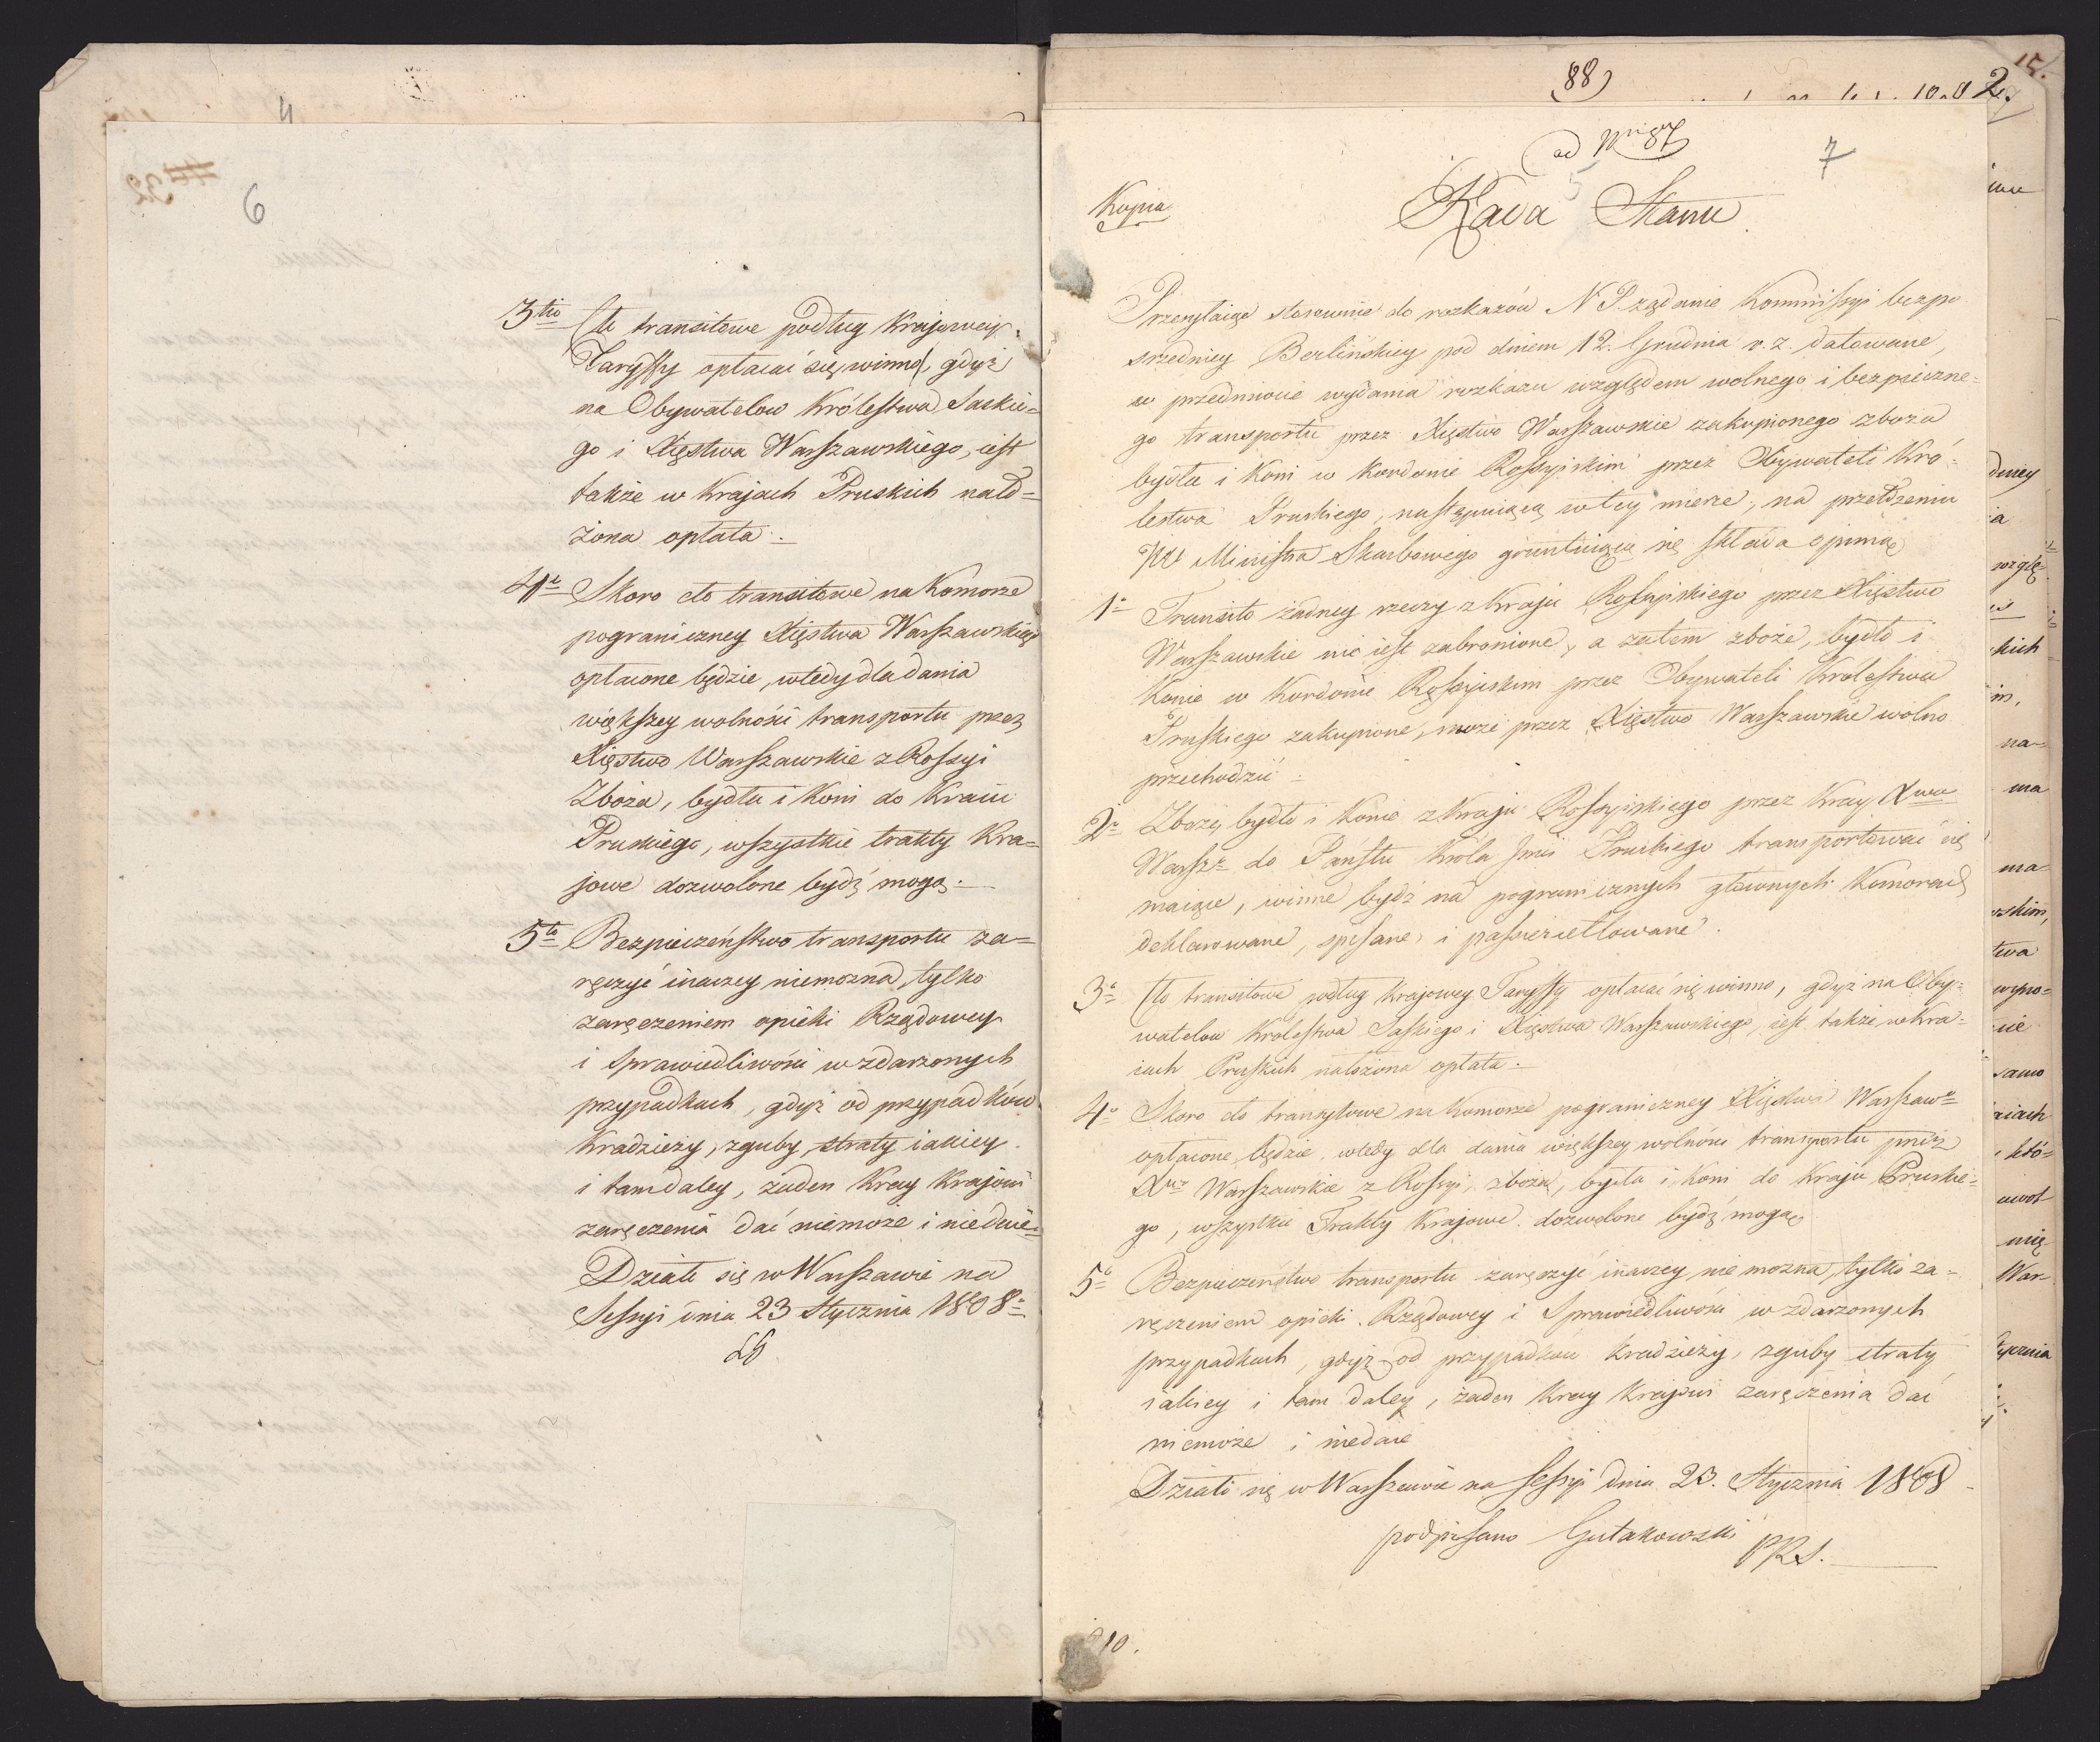 6
3tio Cło transitowe podług Krajowey
Taryffy opłacać się winno, gdyż
na Obywatelow Królestwa Saskie=
go i Xięstwa Warszawskiego, iest
także w Krajach Pruskich nało=
żona opłata.
4to Skoro cło transitowe na Komorze
pograniczney Xięstwa Warszawskiego
opłacone będzie, wtedy dla dania
większey wolności transportu przez
Xięstwo Warszawskie z Rossyi
Zboża, bydła i Koni do Kraiu
Pruskiego, wszystkie trakty Kra=
jowe dozwolone bydź mogą.
5to Bezpieczeństwo transportu za=
ręczyć inaczey niemożna, tylko
zaręczeniem opieki Rządowey
i Sprawiedliwości w zdarzonych
przypadkach, gdyż od przypadków
Kradzieży, zguby, straty iakiey
i tam daley, żaden Kray Krajowi
zaręczenia dać niemoże i niedaie=
Działo się w Warszawie na
Sessyi dnia 23 Stycznia 1808
88)
2.
15.
ad Nrum 87
7
Kopia
Rada Stanu
Przesyłaiąc stosownie do rozkazów N. P. żądanie Kommissyi bezpo
średniey Berlińskiey pod dniem 12. Grudnia r. z. datowane,
w przedmiocie wydania rozkazu względem wolnego i bezpieczne=
go transportu przez Xięstwo Warszawskie zakupionego zboża
bydła i Koni w Kordonie Rossyiskim przez Obywateli Kró=
lestwa Pruskiego, następuiącą w tey mierze, na przełożeniu
JW Ministra Skarbowego gruntuiącą się składa opinią
1o Transito żadney rzeczy z Kraju Rossyiskiego przez Xięstwo
Warszawskie nie iest zabronione, a zatem zboże, bydło i
Konie w Kordonie Rossyiskim przez Obywateli Krolestwa
Pruskiego zakupione, może przez Xięstwo Warszawskie wolno
przechodzić.
2o Zboże, bydło i Konie z Kraju Rossyiskiego przez Kray Xwa
Warszo do Panstw Króla Jmci Pruskiego transportować się
maiące, winne bydź na pogranicznych głownych Komorach
deklarowane, spisane, i passiercetlowane.
3o Cło transitowe podług Krajowey Taryffy opłacać się winno, gdyż na Oby=
watelow Krolestwa Saskiego i Xięstwa Warszawskiego, iest także w Kra=
iach Pruskich nałożona opłata.
4o Skoro cło tranzytowe na Komorze pograniczney Xięstwa Warszawo
opłacone będzie, wtedy dla dania większey wolności transportu przez
Xwo Warszawskie z Rossyi, zboża, bydła i Koni do Kraju Pruskie=
go, wszystkie Trakty Krajowe dozwolone bydź mogą
5o Bezpieczeństwo transportu zaręczyć inaczey nie można, tylko za=
ręczeniem opieki Rządowey i Sprawiedliwości w zdarzonych
przypadkach, gdyż od przypadków kradzieży, zguby straty
iakiey i tam daley, żaden Kray Krajowi zaręczenia dać
niemoże i niedaie
Działo się w Warszawie na Sessyi dnia 23. Stycznia 1808
podpisano Gutakowski PRS.
10.